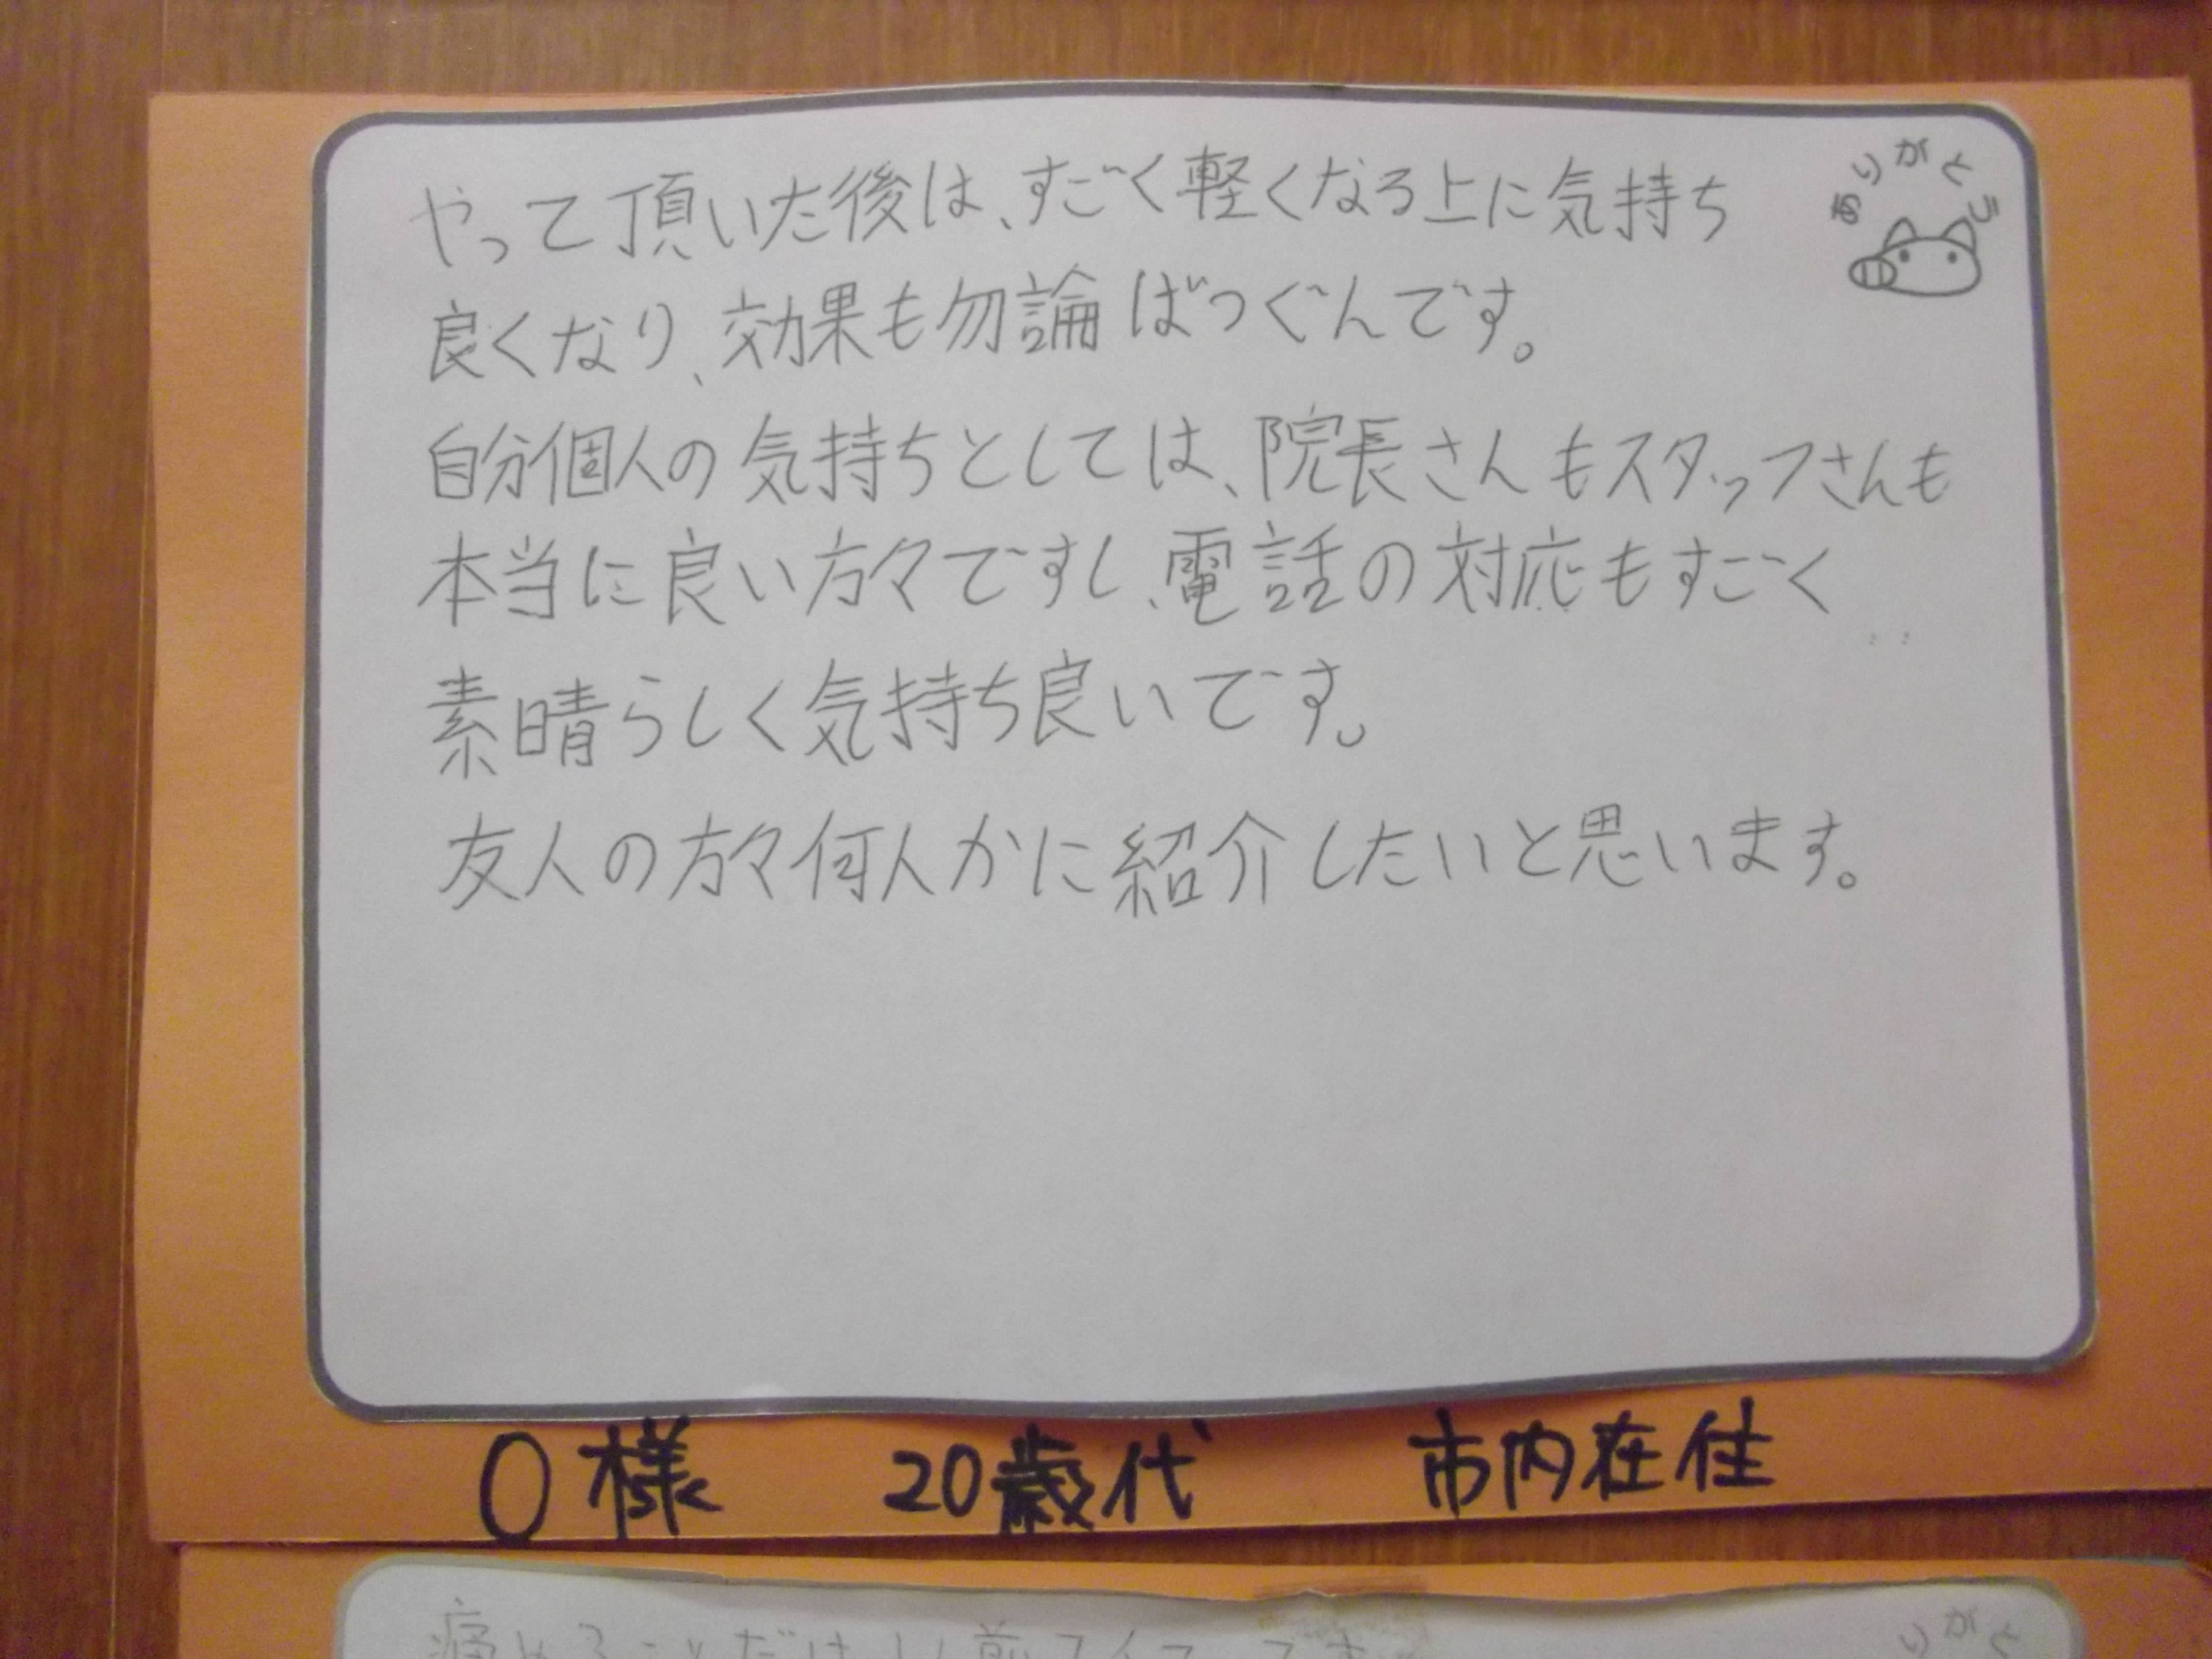 やって頂いた後は、すごく軽くなる上に気持ち
良くなり、効果も勿論ばつぐんです。
自分個人の気持ちとしては、院長さんもスタッフさんも
本当に良い方々ですし、電話の対応もすごく
素晴らしく気持ち良いです。
友人の方々何人かに紹介したいと思います。
ありがとう
O様 20歳代 市内在住
りがと